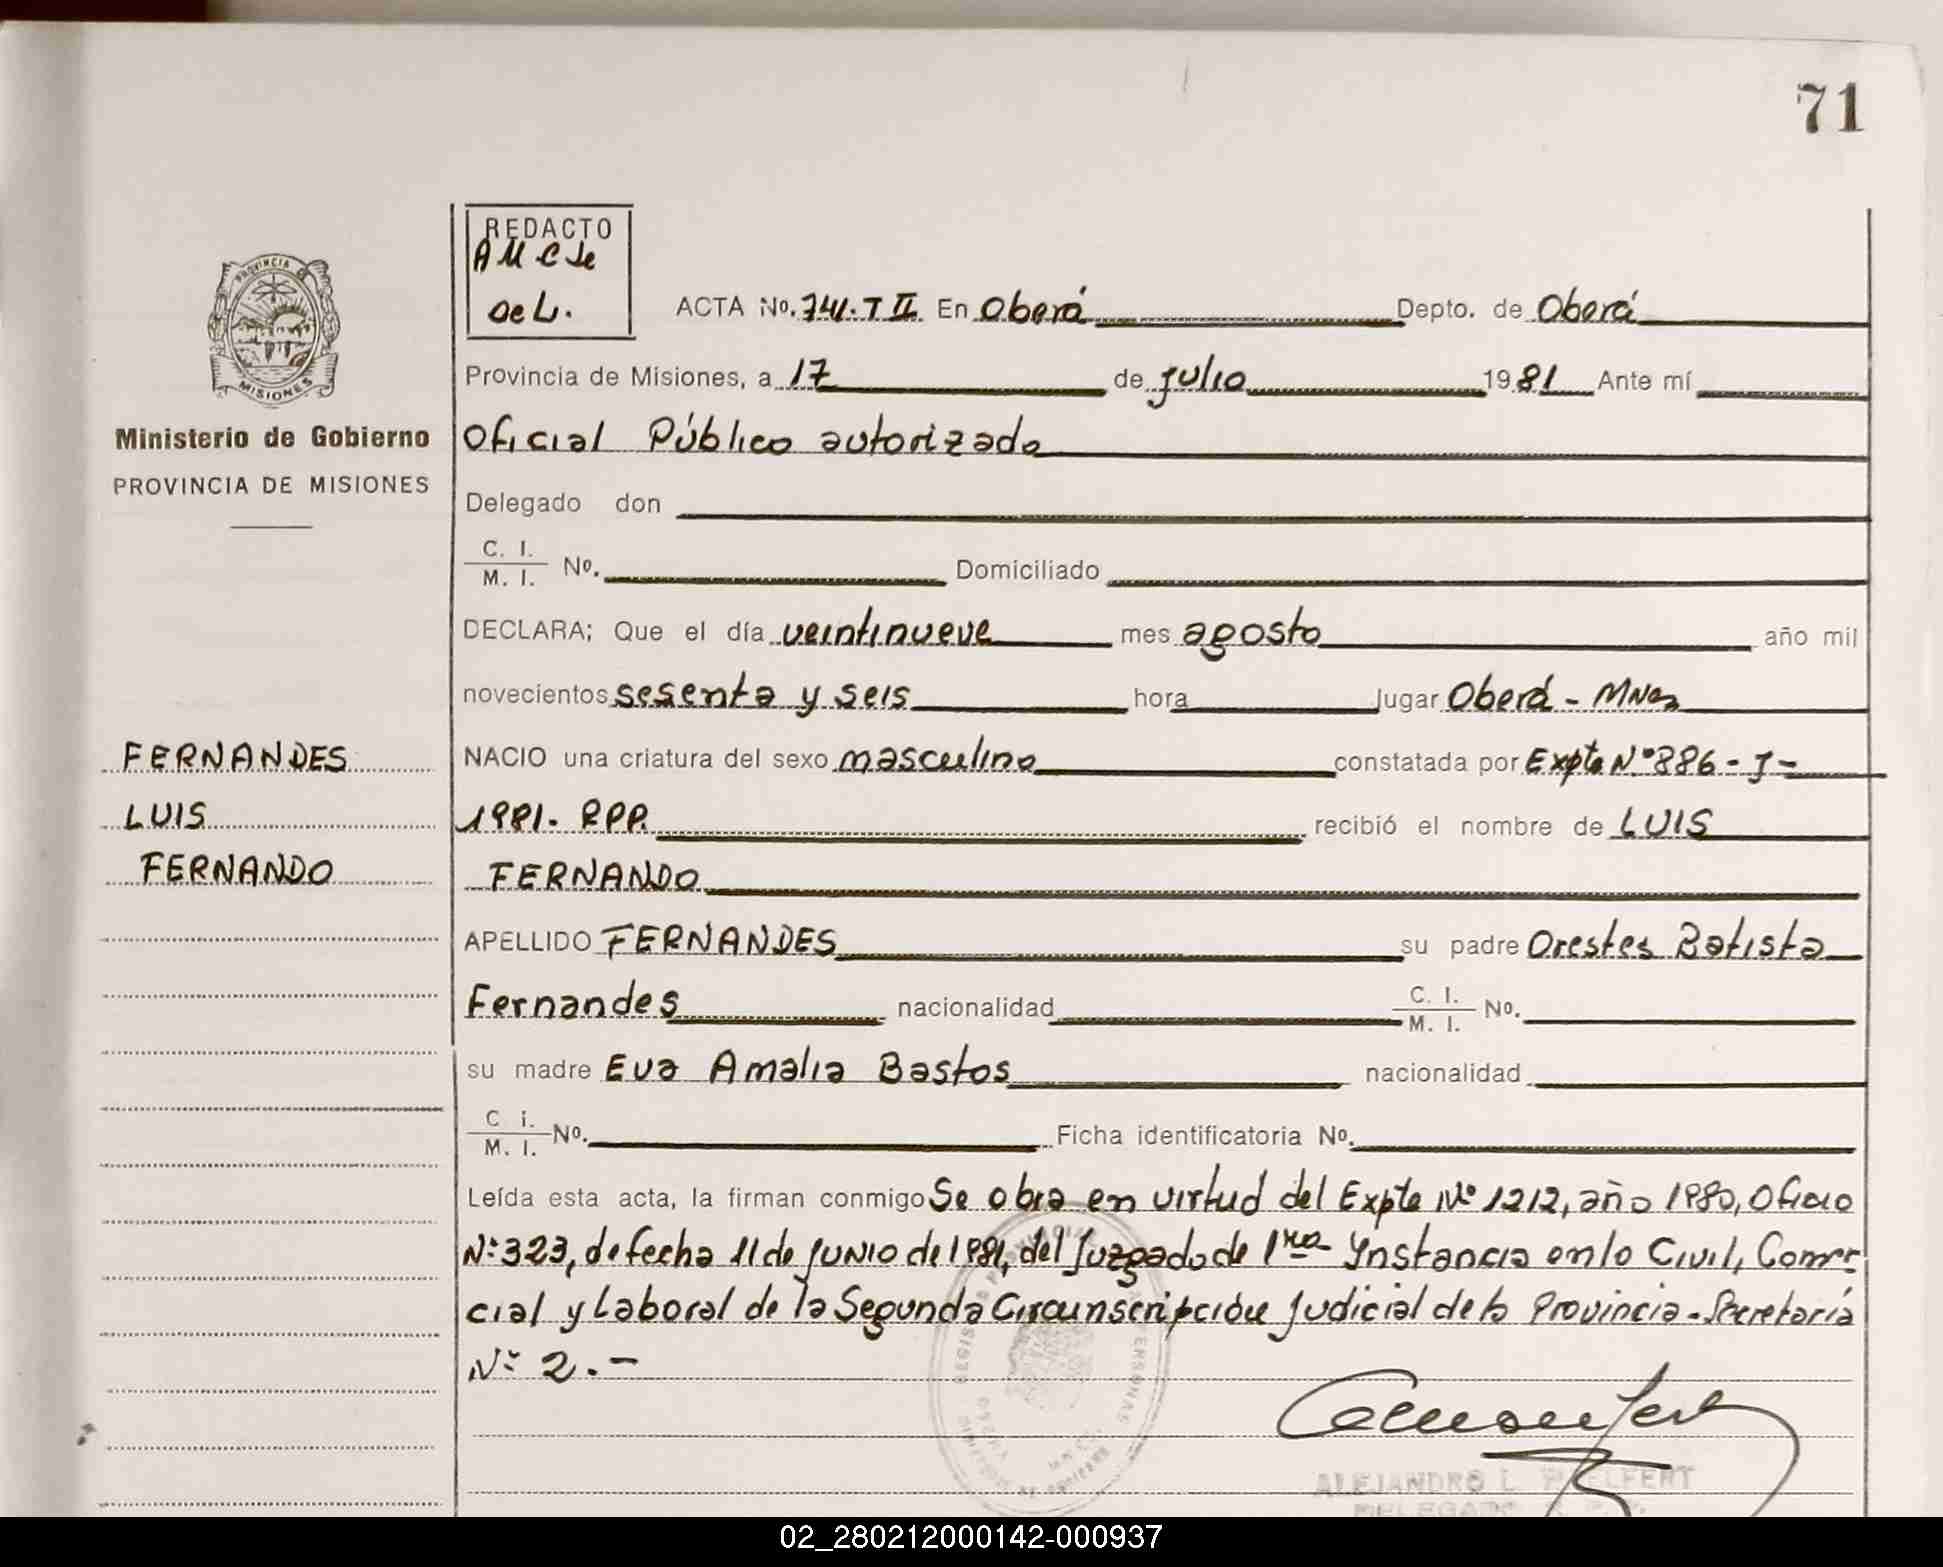 71
REDACTO
AMC de
De L.
PROVINCIA DE
MISIONES
ACTA No. 741. T II En Oberá Depto. de Oberá
Provincia de Misiones, a 17 de julio 1981 Ante mí
Ministerio de Gobierno
PROVINCIA DE MISIONES
Oficial Público autorizado
Delegado don
C. I. / M. I. No. Domiciliado
DECLARA; Que el día veintinueve mes agosto año mil
novecientos sesenta y seis hora lugar Oberá - Mnes
FERNANDES
LUIS
FERNANDO
NACIO una criatura del sexo masculino constatada por Expte Nº 886 - J -
1981. RPP. recibió el nombre de LUIS
FERNANDO
APELLIDO FERNANDES su padre Orestes Batista
Fernandes nacionalidad C. I. / M. I. No.
su madre Eva Amalia Bastos nacionalidad
C i. / M. I. No. Ficha identificatoria No.
Leída esta acta, la firman conmigo Se obra en virtud del Expte Nº 1212, año 1980, Oficio
Nº 323, de fecha 11 de junio de 1981, del Juzgado de 1ra Instancia en lo Civil, Comer-
cial y Laboral de la Segunda Circunscripción Judicial de la Provincia - Secretaría
Nº 2. -
ALEJANDRO L.
DELEGADO
02_280212000142-000937